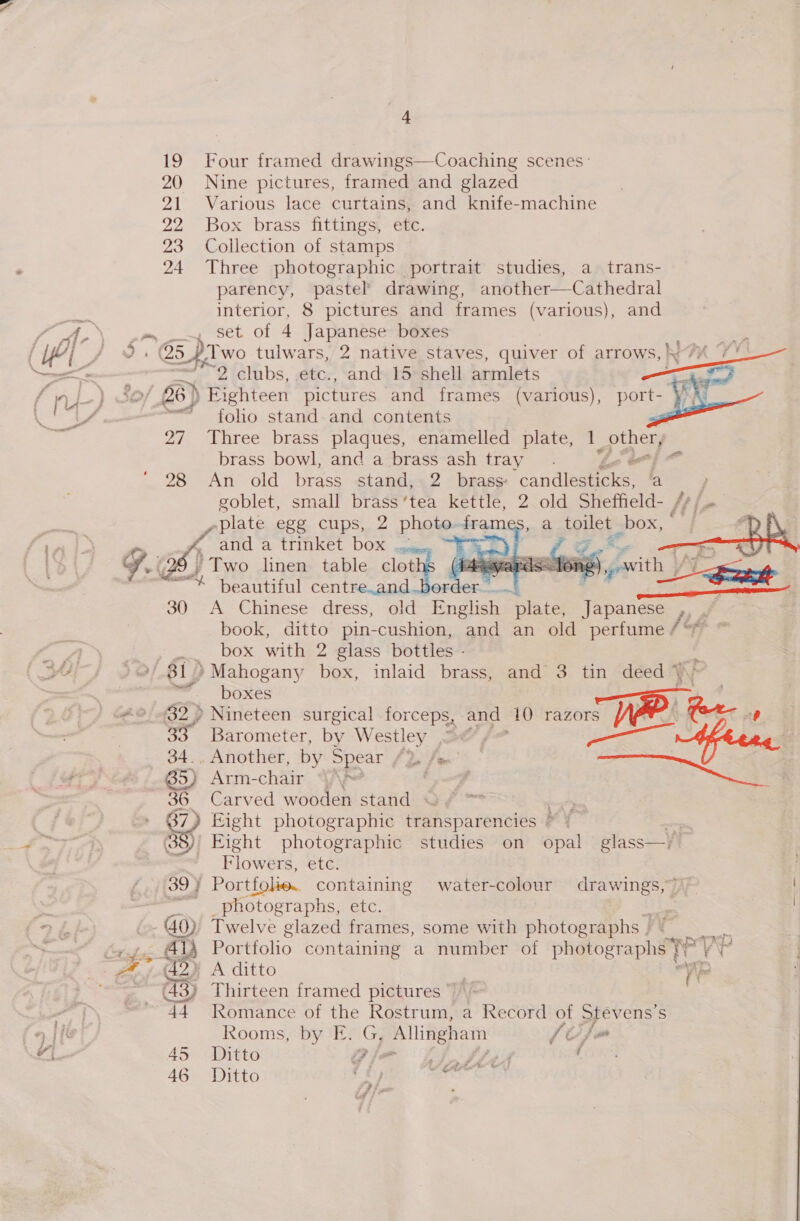 4
19 Four framed drawings—Coaching scenes
20 Nine pictures, framed and glazed
21 Various lace curtains, and knife-machine
22 Box brass fittings, etc.
23 Collection of stamps
24 Three photographic portrait studies, a trans-
parency, pastel drawing, another—Cathedral
interior, 8 pictures and frames (various), and
set of 4 Japanese boxes
25 Two tulwars, 2 native staves, quiver of arrows,
2 clubs, etc., and 15 shell armlets
26 Eighteen pictures and frames (various), port-
folio stand and contents
27 Three brass plaques, enamelled plate, 1 other
brass bowl, and a brass ash tray
28 An old brass stand, 2 brass candlesticks, a
goblet, small brass tea kettle, 2 old Sheffield-
plate egg cups, 2 photo frames, a toilet box,
and a trinket box
29 Two linen table cloths (14 yards long), with
beautiful centre and border
30 A Chinese dress, old English plate, Japanese
book, ditto pin-cushion, and an old perfume
box with 2 glass bottles
31 Mahogany box, inlaid brass, and 3 tin deed
boxes
32 Nineteen surgical forceps, and 10 razors
33 Barometer, by Westley
34 Another, by Spear
35 Arm-chair
36 Carved wooden stand
37 Eight photographic transparencies
38 Eight photographic studies on opal glass—
Flowers, etc.
39 Portfolio containing water-colour drawings,
photographs, etc.
40 Twelve glazed frames, some with photographs
41 Portfolio containing a number of photographs
42 A ditto
43 Thirteen framed pictures
44 Romance of the Rostrum, a Record of Stevens's
Rooms, by E. G. Allingham
45 Ditto
46 Ditto